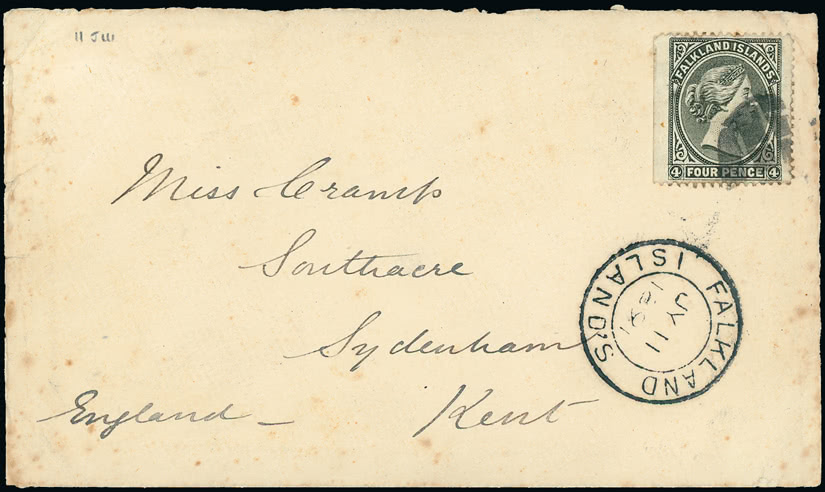 11 JUL
FALKLAND ISLANDS
4 FOUR PENCE 4
Miss Cramp
Southacre
Sydenham
Kent
England
FALKLAND ISLANDS
JY 11